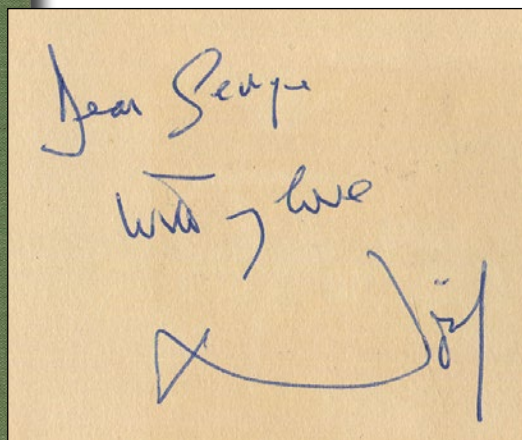 Dear George
with my love